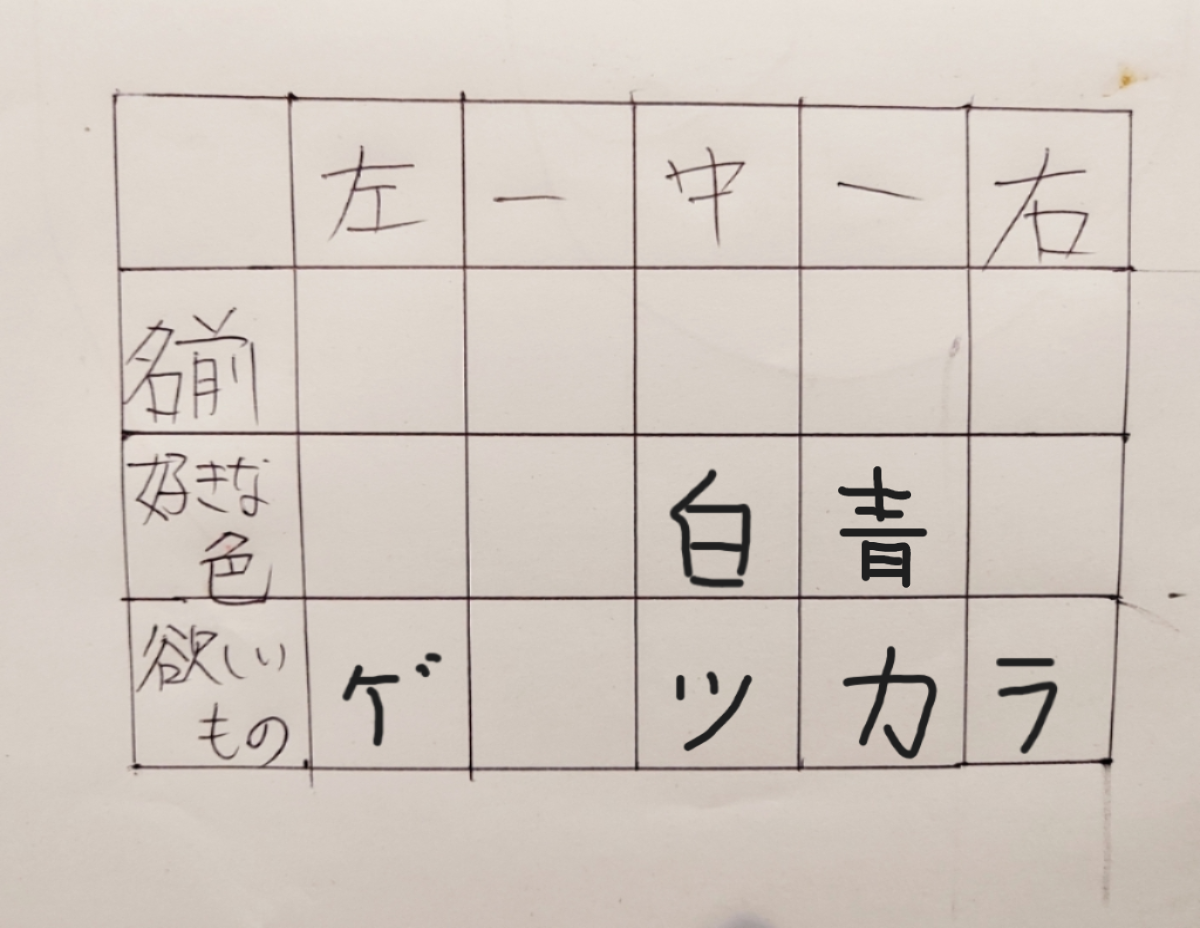 左 一 中 一 右
名前
好きな 白 青
色
欲しい ゲ ツ カ ラ
もの